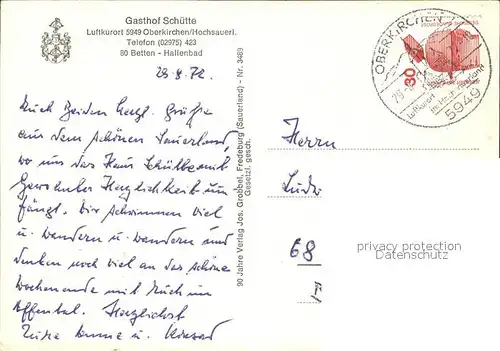 Gasthof Schütte
Luftkurort 5949 Oberkirchen/Hochsauerl.
Telefon (02975) 423
80 Betten - Hallenbad
28.8.72
Euch Beiden herzl. Grüße
aus dem schönen Sauerland,
wo uns das Haus Schütte mit
Gewohnter Herzlichkeit um
fängt. Wir schwimmen viel
u. wandern u. wandern und
denken noch viel an das schöne
Wochenende mit Euch im
Herzlichst
Eure u. Konrad
90 Jahre Verlag Jos. Grobbel, Fredeburg (Sauerland) - Nr. 3489
Gesetzl. gesch.
OBERKIRCHEN
30
Luftkurort
5949
Herrn
Ludw
68
privacy protection
Datenschutz